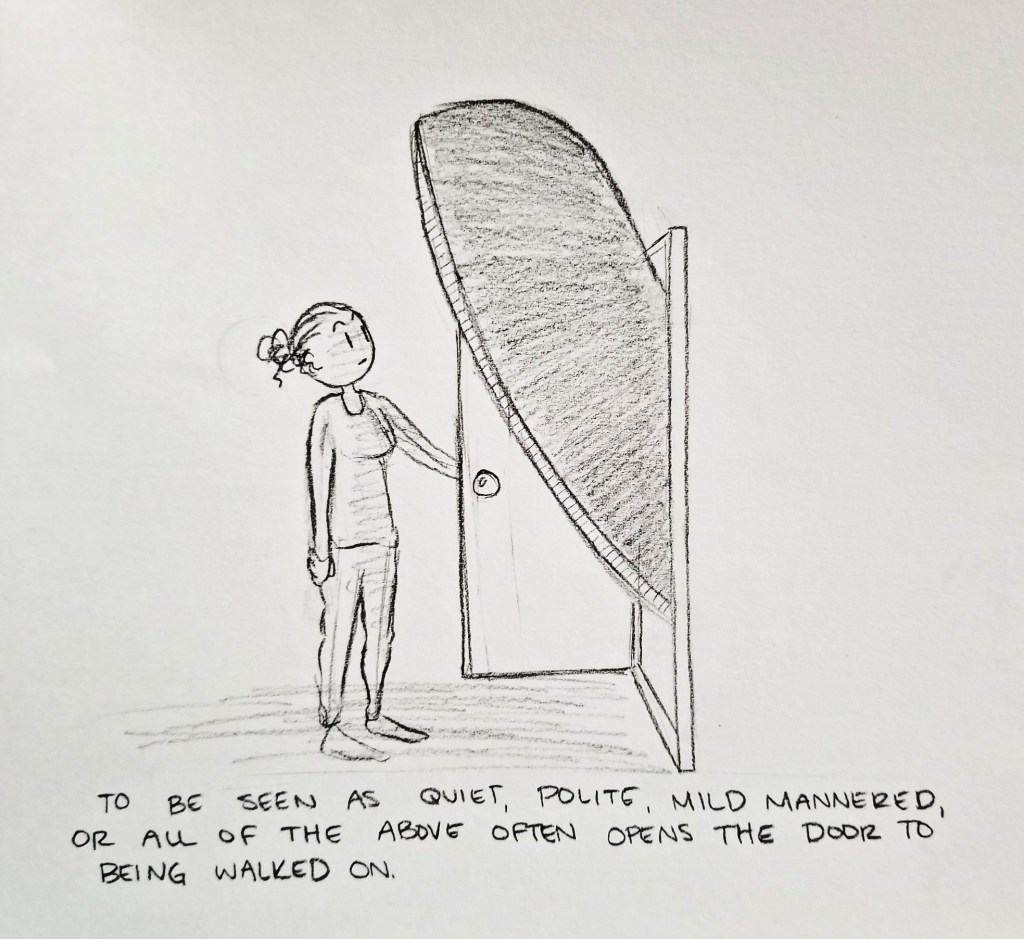 TO BE SEEN AS QUIET, POLITE, MILD MANNERED,
OR ALL OF THE ABOVE OFTEN OPENS THE DOOR TO
BEING WALKED ON.